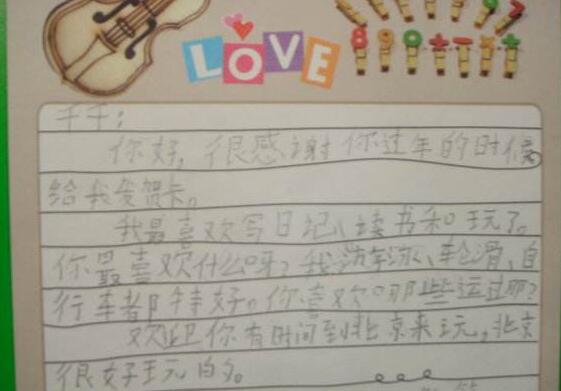 LOVE
890+-×÷
千千：
你好，很感谢你过年的时候
给我发贺卡。
我最喜欢写日记、读书和玩了。
你最喜欢什么呀？我游泳、轮滑、自
行车都特好。你喜欢哪些运动？
欢迎你有时间到北京来玩，北京
很好玩的。